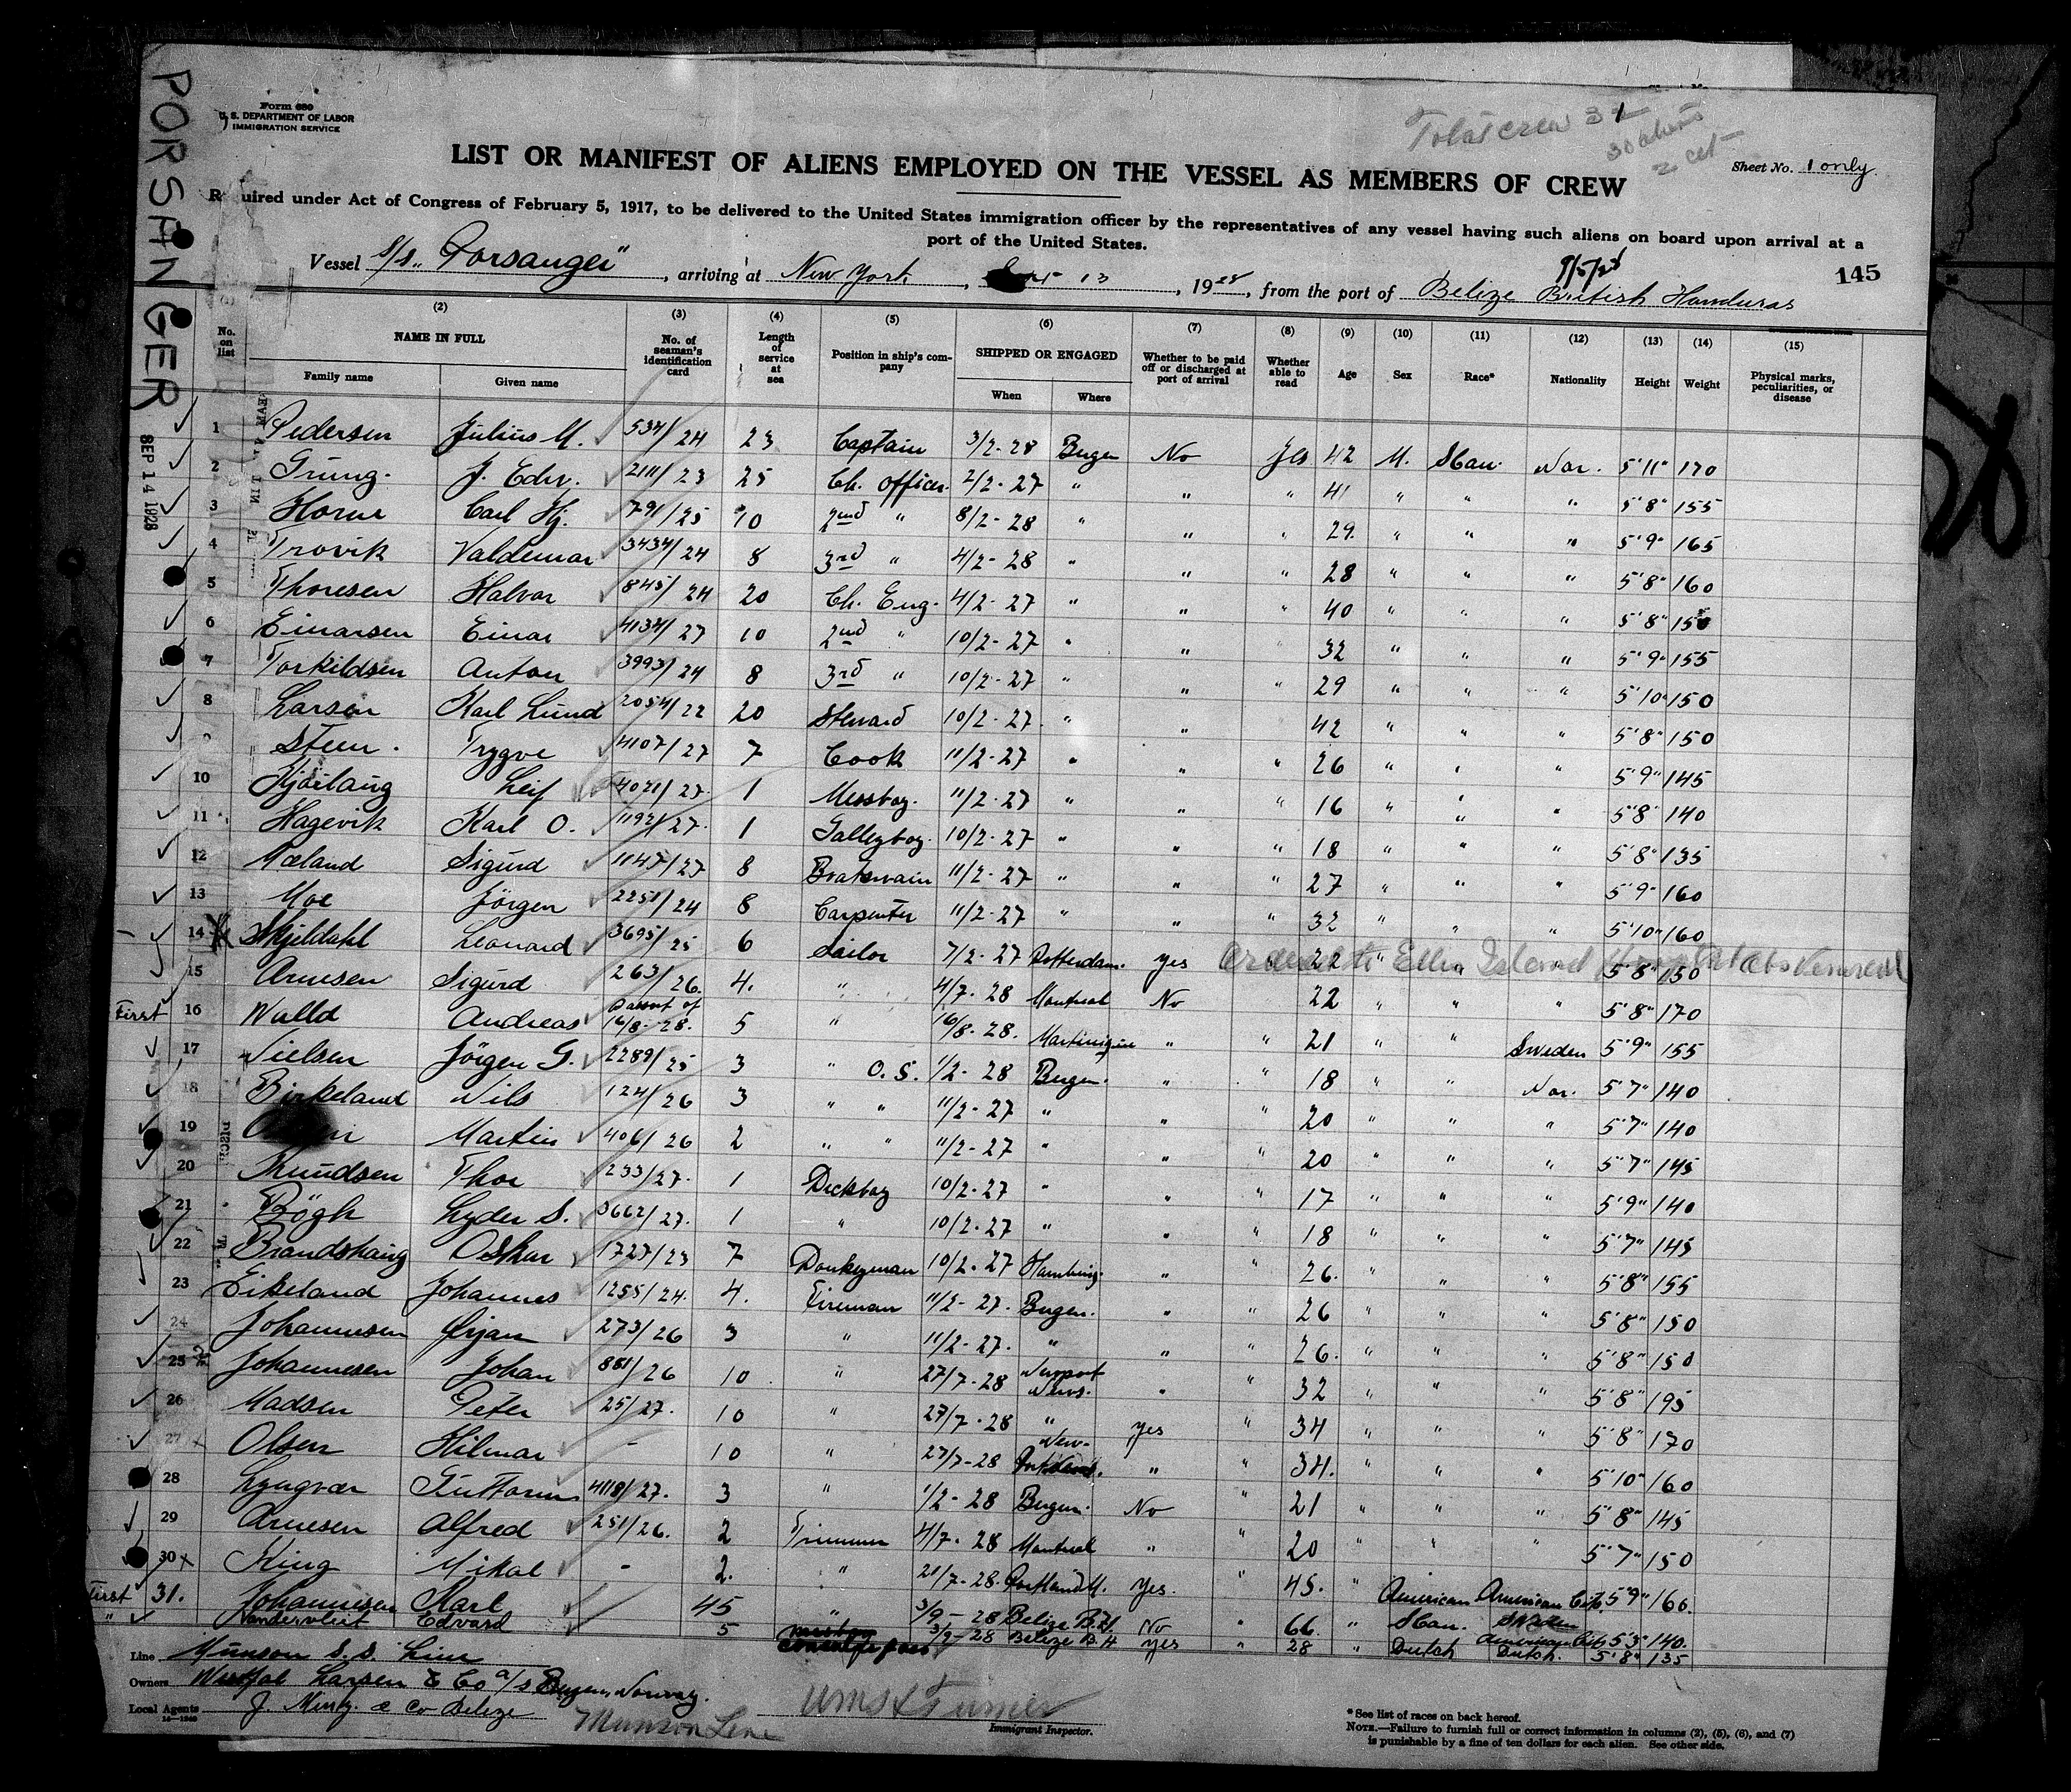 PORSANGER
SEP 14 1928
Form 680
U. S. DEPARTMENT OF LABOR
IMMIGRATION SERVICE
Total crew 31
30 aliens
2 cit
LIST OR MANIFEST OF ALIENS EMPLOYED ON THE VESSEL AS MEMBERS OF CREW
Sheet No. 1 only
Required under Act of Congress of February 5, 1917, to be delivered to the United States immigration officer by the representatives of any vessel having such aliens on board upon arrival at a
port of the United States.
9/5/28
Vessel S/S. "Porsanger", arriving at New York, Sept 13, 1928, from the port of Belize British Honduras
145
No. on list
(2) NAME IN FULL Family name Given name
(3) No. of seaman's identification card
(4) Length of service at sea
(5) Position in ship's company
(6) SHIPPED OR ENGAGED When Where
(7) Whether to be paid off or discharged at port of arrival
(8) Whether able to read
(9) Age
(10) Sex
(11) Race*
(12) Nationality
(13) Height
(14) Weight
(15) Physical marks, peculiarities, or disease
1 Pedersen Julius M. 534/24 23 Captain 3/2-28 Bergen No Yes 42 M. Scan. Nor. 5'11" 170
2 Grung. J. Edv. 2111/23 25 Ch. Officer. 2/2-27 " " " 41 " " " 5'8" 155
3 Horne Carl Hj. 791/25 10 2nd " 8/2-28 " " " 29. " " " 5'9" 165
4 Trovik Valdemar 3434/24 8 3rd " 4/2-28 " " " 28 " " " 5'8" 160
5 Thoresen Halvor 845/24 20 Ch. Eng. 4/2-27 " " " 40 " " " 5'8" 150
6 Einarsen Einar 4134/27 10 2nd " 10/2-27 " " " 32 " " " 5'9" 155
7 Torkildsen Anton 3993/24 8 3rd " 10/2-27 " " " 29 " " " 5'10" 150
8 Larsen Karl Lund 2054/22 20 Steward 10/2-27. " " " 42 " " " 5'8" 150
9 Steen. Trygve 4107/27 7 Cook 11/2-27 " " " 26 " " " 5'9" 145
10 Kjöilaug Leif 4021/27. 1 Messboy. 11/2-27 " " " 16 " " " 5'8" 140
11 Hagevik Karl O. 1192/27. 1 Galleyboy. 10/2-27 " " " 18 " " " 5'8" 135
12 Mæland Sigurd 1147/27 8 Boatswain 11/2-27 " " " 27 " " " 5'9" 160
13 Moe Jörgen 2251/24 8 Carpenter 11/2-27 " " " 32 " " " 5'10" 160
14 Skjeldahl Leonard 3695/25 6 Sailor 7/2-27 Rotterdam. yes 22 " " 5'8" 150 Ellis Island
15 Arnesen Sigurd 263/26. 4. " 4/7-28 Montreal No 22 " " " 5'8" 170
First 16 Walld Andreas 16/8-28. 5 " 16/8-28. Martinique " " 21 " " Sweden 5'9" 155
17 Nielsen Jörgen G. 2289/25 3 " O.S. 1/2-28 Bergen. " " 18 " " Nor. 5'7" 140
18 Birkeland Nils 124/26 3 " " 11/2-27 " " " 20 " " " 5'7" 140
19 Martin 406/26 2 " " 11/2-27 " " " 20 " " " 5'7" 145
20 Knudsen Thor 233/27. 1 Deckboy 10/2-27 " " " 17 " " " 5'9" 140
21 Bögh Lyder S. 3662/27. 1 " 10/2-27 " " " 18 " " " 5'7" 145
22 Brandshaug Oskar 1727/23 7 Donkeyman 10/2-27 Hamburg. " " 26. " " " 5'8" 155
23 Eikeland Johannes 1255/24. 4. Fireman 11/2-27. Bergen. " " 26 " " " 5'8" 150
24 Johannesen Örjan 273/26 3 " 11/2-27. " " " 26. " " " 5'8" 150
25 Johannesen Johan 881/26 10 " 27/7-28 Newport News. " " 32 " " " 5'8" 195
26 Madsen Peter 25/27. 10 " 27/7-28 " yes " 34 " " " 5'8" 170
27 Olsen Hilmar - 10 " 27/7-28 " " 34. " " " 5'10" 160
28 Lyngvær Guttorm 4118/27. 3 " 1/2-28 Bergen. No " 21 " " " 5'8" 145
29 Arnesen Alfred 251/26. 2 Trimmer 4/7-28 Montreal " " 20 " " " 5'7" 150
30 King Mikal - 2. " 21/7-28. Portland M. Yes. " 45. " American American Cit. 5'9" 160.
First 31. Johannesen Karl 45 " 3/9-28 Belize B.H. No " 66. " Scan. Sweden 5'3" 140.
" Vandervleit Edvard 5 3/9-28 Belize B.H yes " 28 " Dutch Dutch. 5'8" 135
American Cit
Line Munson S.S. Line
Owners Westfal Larsen & Co a/s Bergen, Norway.
Local Agents J. Mertz. & Co Belize
Munson Line
Immigrant Inspector.
* See list of races on back hereof.
NOTE.—Failure to furnish full or correct information in columns (2), (5), (6), and (7)
is punishable by a fine of ten dollars for each alien. See other side.